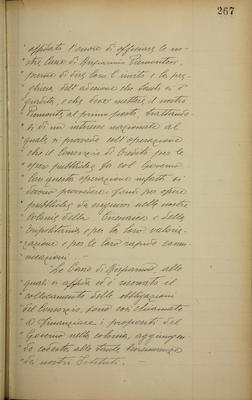 267
affidato l'onore di officiare le no-
stre Casse di Risparmio Piemontesi,
premio di dire loro l'invito e la pre-
ghiera dell'adesione che tanto ci è
gradita, e che deve mettere il nostro
Piemonte al primo posto, trattando-
si di un interesse nazionale al
quale si provvede coll'operazione
che il Consorzio di Credito per le
opere pubbliche fa col Governo.
Con questa operazione infatti si
devono provvedere i fondi per opere
pubbliche da eseguirsi nelle nostre
colonie della Cirenaica e della
Tripolitania e per la loro valoriz-
zazione e per le loro rapide comu-
nicazioni. —
Le Casse di Risparmio, alle
quali si affida ed è riservato il
collocamento delle obbligazioni
del Consorzio, sono così chiamate
a finanziare i propositi del
Governo nelle colonie, aggiungen-
do codesta alle tante benemerenze
dei nostri Istituti. —